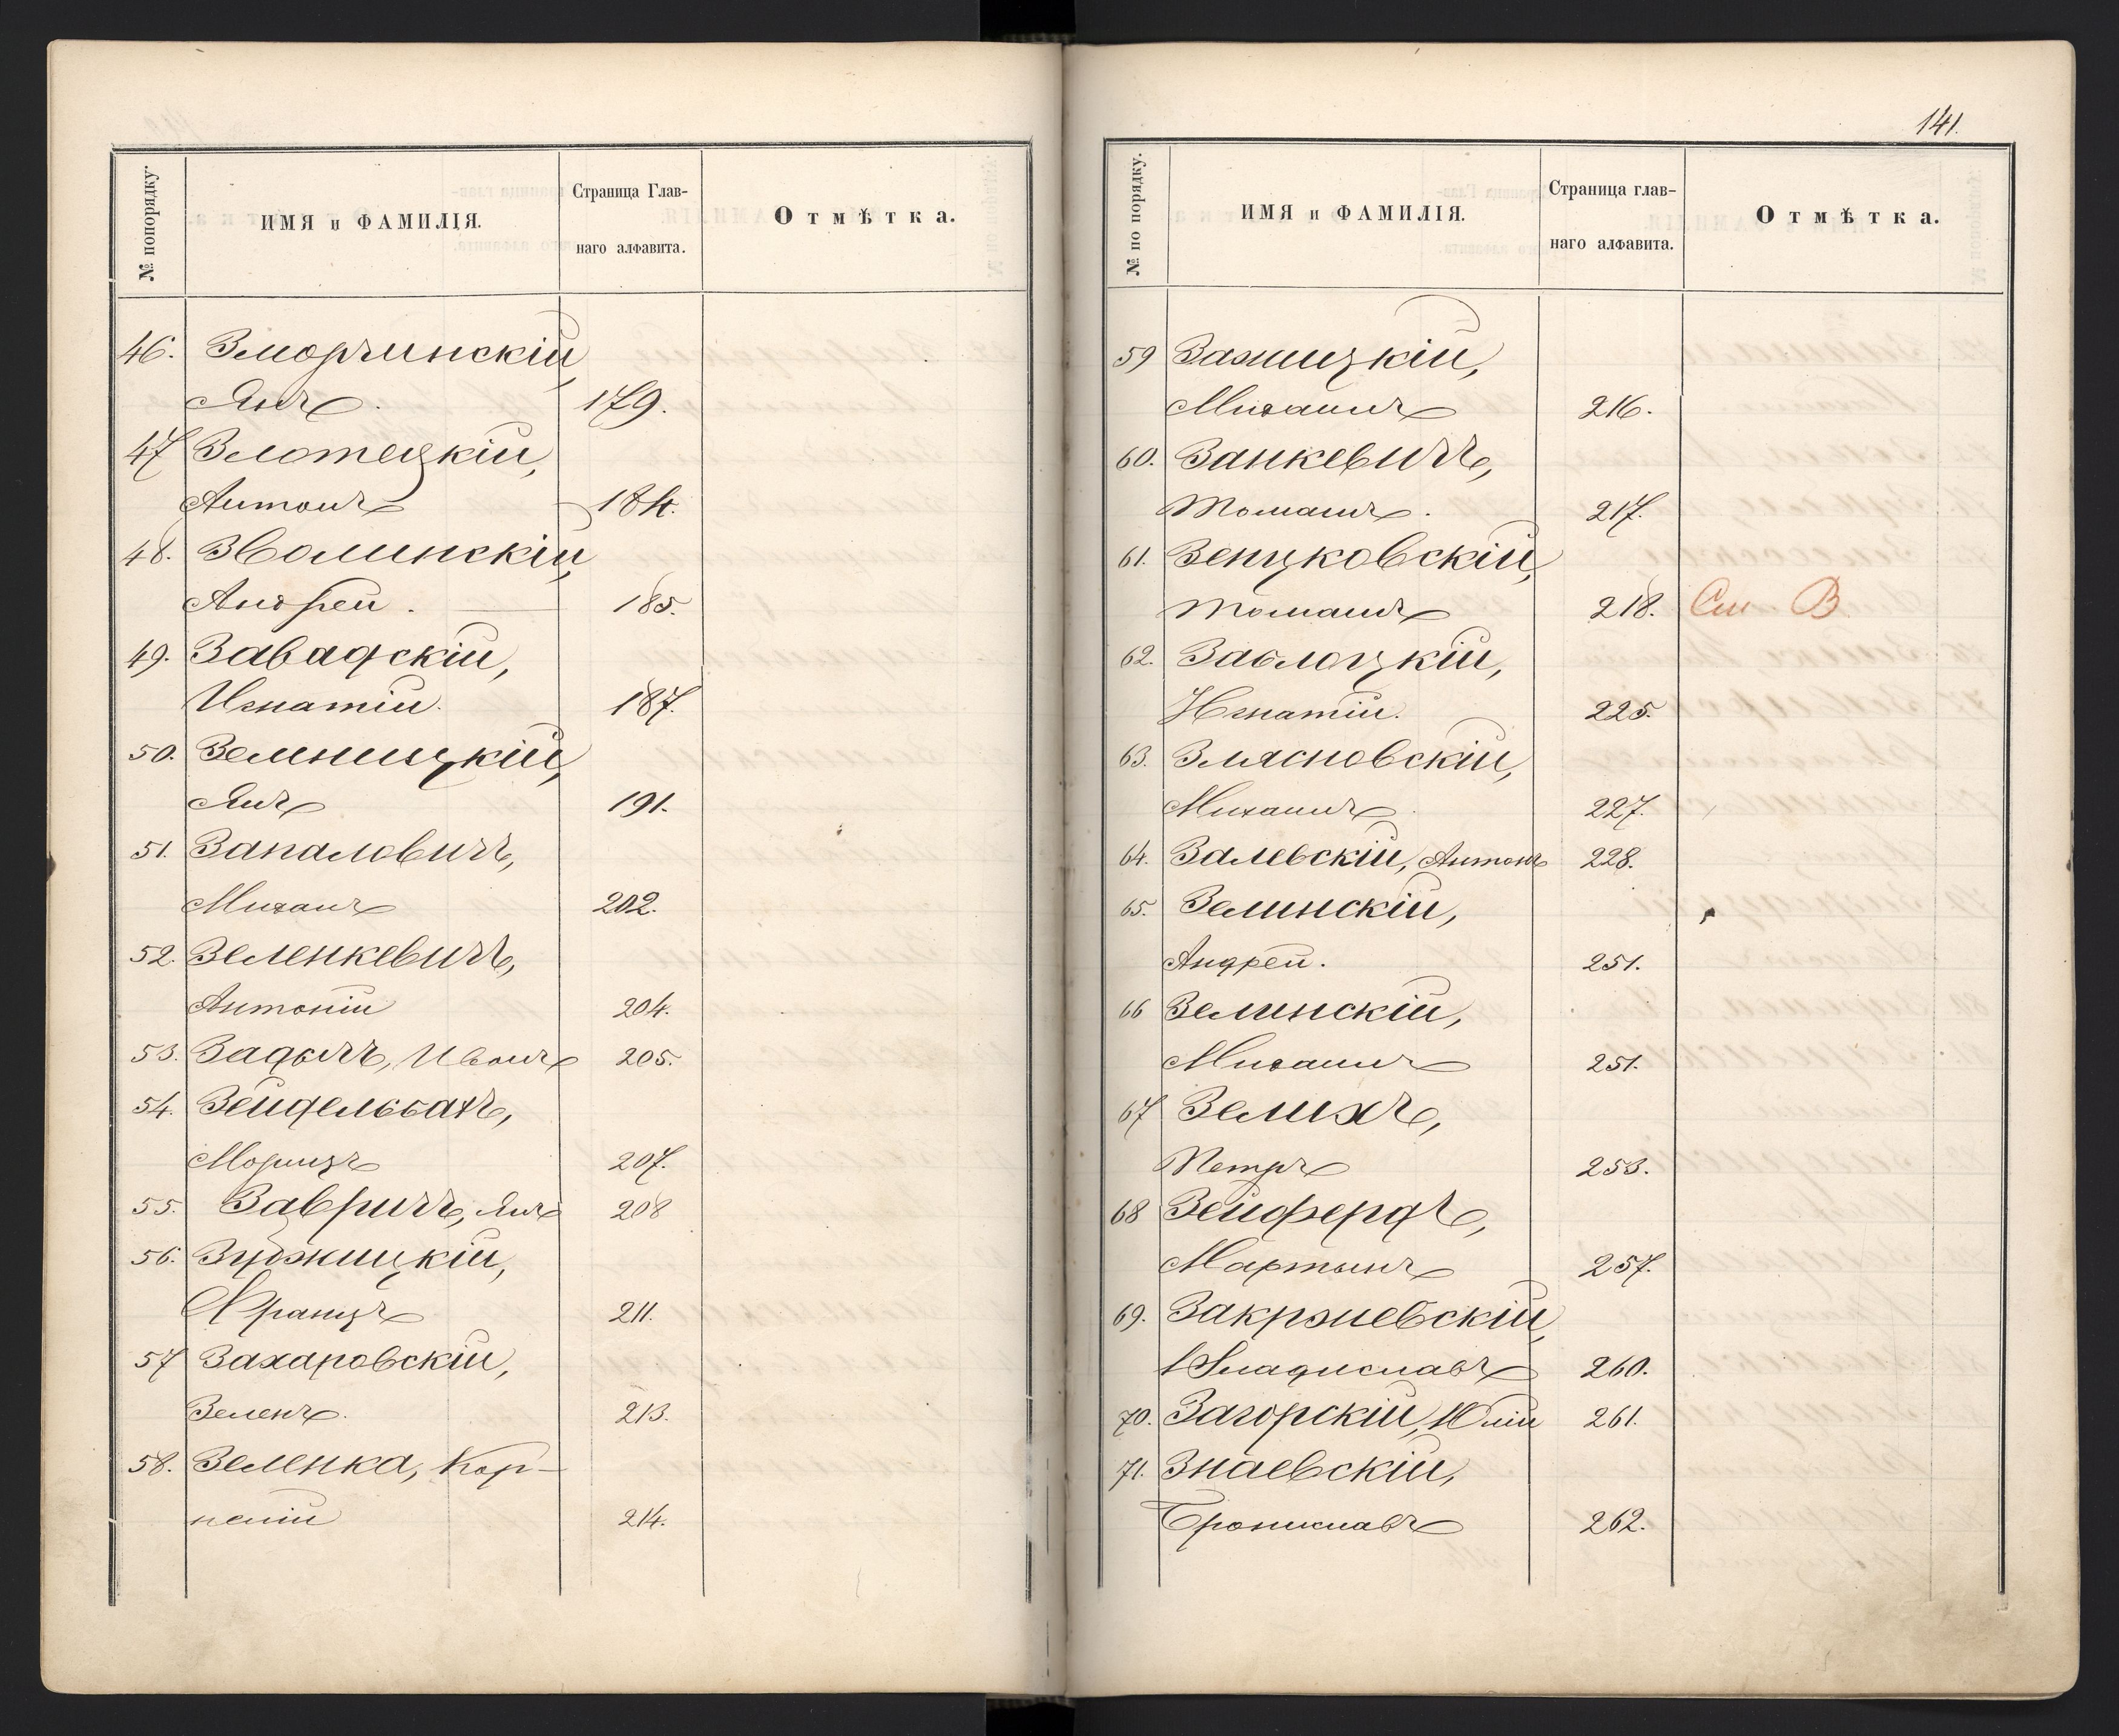 № попорядку.
ИМЯ и ФАМИЛІЯ.
Страница Глав-
наго алфавита.
Отмѣтка.
46. Зморлинскій,
Янъ. 179.
47 Злотецкій,
Антонъ 184.
48. Зволинскій,
Андрей. 185.
49. Завадскій,
Игнатій. 187.
50. Земницкій,
Янъ 191.
51. Запаловичъ,
Миханъ 202.
52. Зеленкевичъ,
Антоній 204.
53. Задылъ, Иванъ 205.
54. Зейдельбахъ,
Морицъ 207.
55. Завричъ, Янъ 208
56.
Францъ 211.
57 Захаровскій,
Зеленъ. 213.
58. Зеленка, Кор-
нелій 214.
141.
№ по порядку.
ИМЯ и ФАМИЛІЯ.
Страница глав-
наго алфавита.
Отмѣтка.
59 Зажицкій,
Михаилъ 216.
60. Занкевичъ,
Томашъ. 217.
61. Зенцковскій,
Томашъ 218. См. В
62. Заблоцкій,
Игнатій. 225.
63. Злясновскій,
Михаилъ. 227.
64. Залевскій, Антонъ 228.
65. Зелинскій,
Андрей. 251.
66 Зелинскій,
Михаилъ 251.
67 Зелихъ,
Петръ 253.
68 Зейфердъ,
Мартынъ 257.
69. Закржевскій,
Владиславъ 260.
70. Загорскій, Юлій 261.
71. Знаевскій,
Брониславъ 262.